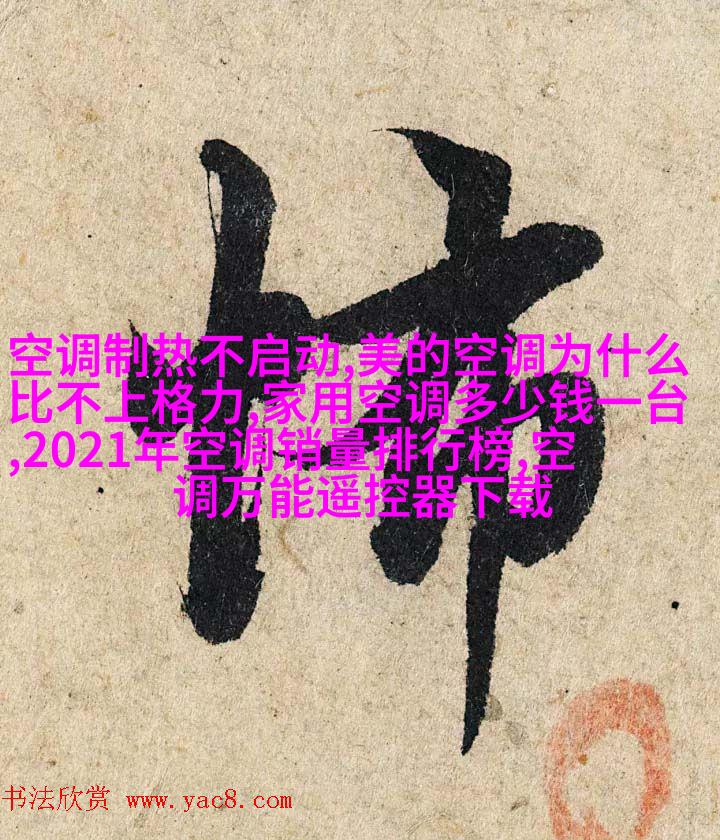 空调制热不启动,美的空调为什么
比不上格力,家用空调多少钱一台
,2021年空调销量排行榜,空
调万能遥控器下载
书法欣赏 www.yac8.com